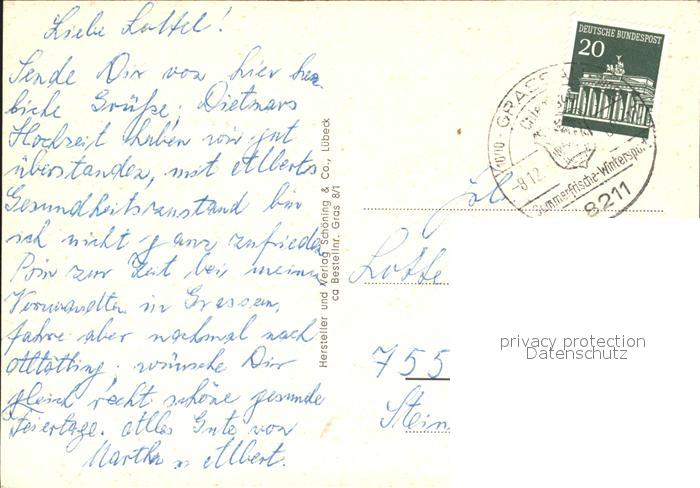 Liebe Lottel!
Sende Dir von hier herz
liche Grüße. Dietmars
Hochzeit haben wir gut
überstanden, mit Alberts
Gesundheitszustand bin
ich nicht ganz zufrieden
Bin zur Zeit bei meinen
Verwandten in Grassau,
fahre aber nochmal nach
Altötting. wünsche Dir
gleich recht schöne gesunde
Feiertage. Alles Gute von
Martha u Albert.
Hersteller und Verlag Schöning & Co., Lübeck
ca Bestellnr. Gras 8/1
DEUTSCHE BUNDESPOST
20
GRASSAU
-8.12.
Sommerfrische-Winterspo
8211
Lotte
755
Stein
privacy protection
Datenschutz